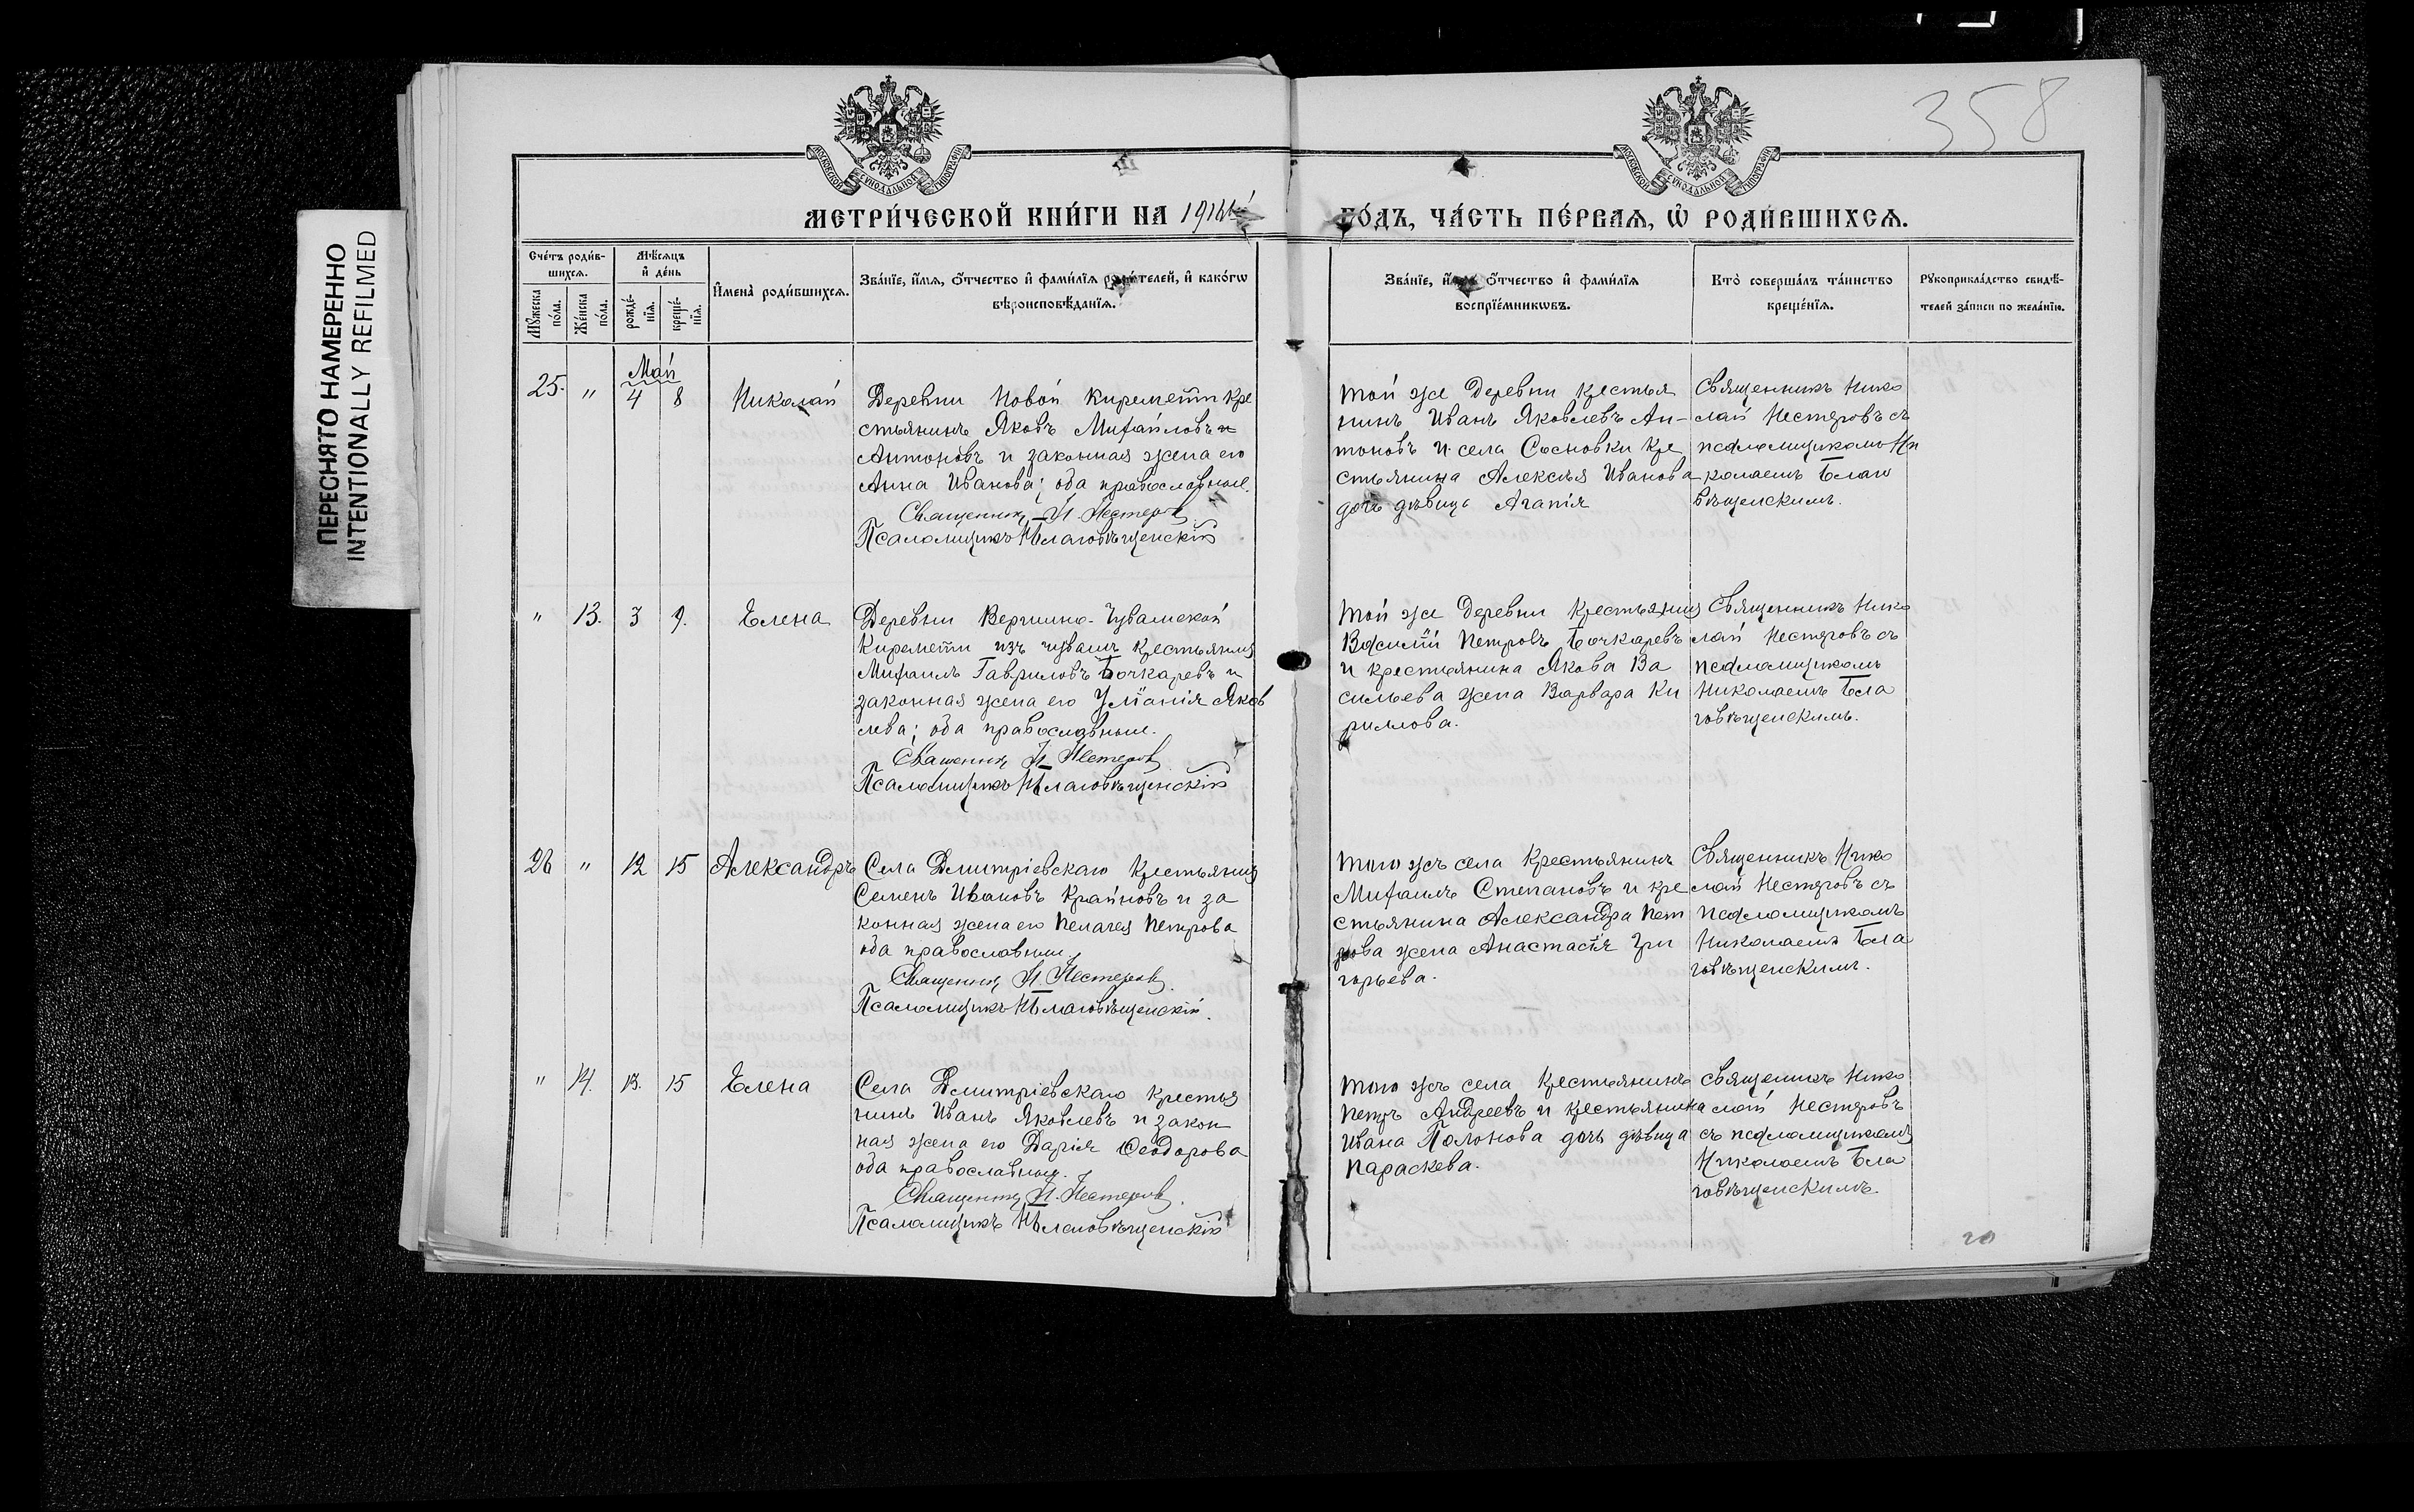 ПЕРЕСНЯТО НАМЕРЕННО
INTENTIONALLY REFILMED
358
МОСКОВСКОЙ СѴНОДАЛЬНОЙ ТИПОГРАФІИ
МОСКОВСКОЙ СѴНОДАЛЬНОЙ ТИПОГРАФІИ
МЕТРИ́ЧЕСКОЙ КНИ́ГИ НА
ГО́ДЪ, ЧА́СТЬ ПЕ́РВАѦ, Ѡ РОДИ́ВШИХСѦ.
Сче́тъ роди́в-
шихсѧ.
Мꙋ́жеска по́ла.
Же́нска по́ла.
Мѣ́сѧцъ
и҆ де́нь
рожде́-
нїѧ.
креще́-
нїѧ.
И҆мена̀ роди́вшихсѧ.
Зва́нїе, и҆́мѧ, ѻ҆́тчество и҆ фами́лїѧ роди́телей, и҆ како́гѡ
вѣроисповѣ́данїѧ.
Зва́нїе, и҆́мѧ, ѻ҆́тчество и҆ фами́лїѧ
воспрїе́мникѡвъ.
Кто̀ соверша́лъ та́инство
креще́нїѧ.
Рꙋкоприкла́дство свидѣ́-
телей за́писи по жела́нїю.
Май
25. " 4 8 Николай
Деревни Новой Киремети кре
стьянинъ Яковъ Михайловъ
Антоновъ и законная жена его
Анна Иванова; оба православные.
Священникъ Н. Нестеровъ
Псаломщикъ Н Благовѣщенскій
Той же деревни крестья
нинъ Иванъ Яковлевъ Ан-
тоновъ и села Сосновки кре
стьянина Алексѣя Иванова
дочь дѣвица Агапія
Священникъ Нико
лай Нестеровъ съ
псаломщикомъ Ни
колаемъ Благо
вѣщенскимъ.
" 13. 3 9. Елена
Деревни Вершино-Чувашской
Киремети изъ чувашъ крестьянинъ
Михаилъ Гавриловъ Бочкаревъ и
законная жена его Уліанія Яков
лева; оба православные.
Священникъ Н Нестеровъ
Псаломщикъ Н Благовѣщенскій
Той же деревни крестьянинъ
Василій Петровъ Бочкаревъ
и крестьянина Якова Ва
сильева жена Варвара Ки
риллова.
Священникъ Нико
лай Нестеровъ съ
псаломщикомъ
Николаемъ Бла
говѣщенскимъ.
26 " 12 15 Александръ
Села Дмитріевскаго крестьянинъ
Семенъ Ивановъ Крайновъ и за
конная жена его Пелагея Петрова
оба православные
Священникъ Н. Нестеровъ.
Псаломщикъ Н Благовѣщенскій.
Того жъ села крестьянинъ
Михаилъ Степановъ и кре
стьянина Александра Пет
рова жена Анастасія Гри
горьева.
Священникъ Нико
лай Нестеровъ съ
псаломщикомъ
Николаемъ Бла
говѣщенскимъ.
" 14. 13. 15 Елена
Села Дмитріевскаго крестья
нинъ Иванъ Яковлевъ и закон
ная жена его Дарія Ѳеодорова
оба православные.
Священникъ Н. Нестеровъ.
Псаломщикъ Н Благовѣщенскій
Того жъ села крестьянинъ
Петръ Андреевъ и крестьянина
Ивана Полонова дочь дѣвица
Параскева.
Священникъ Нико
лай Нестеровъ
съ псаломщикомъ
Николаемъ Бла
говѣщенскимъ.
20